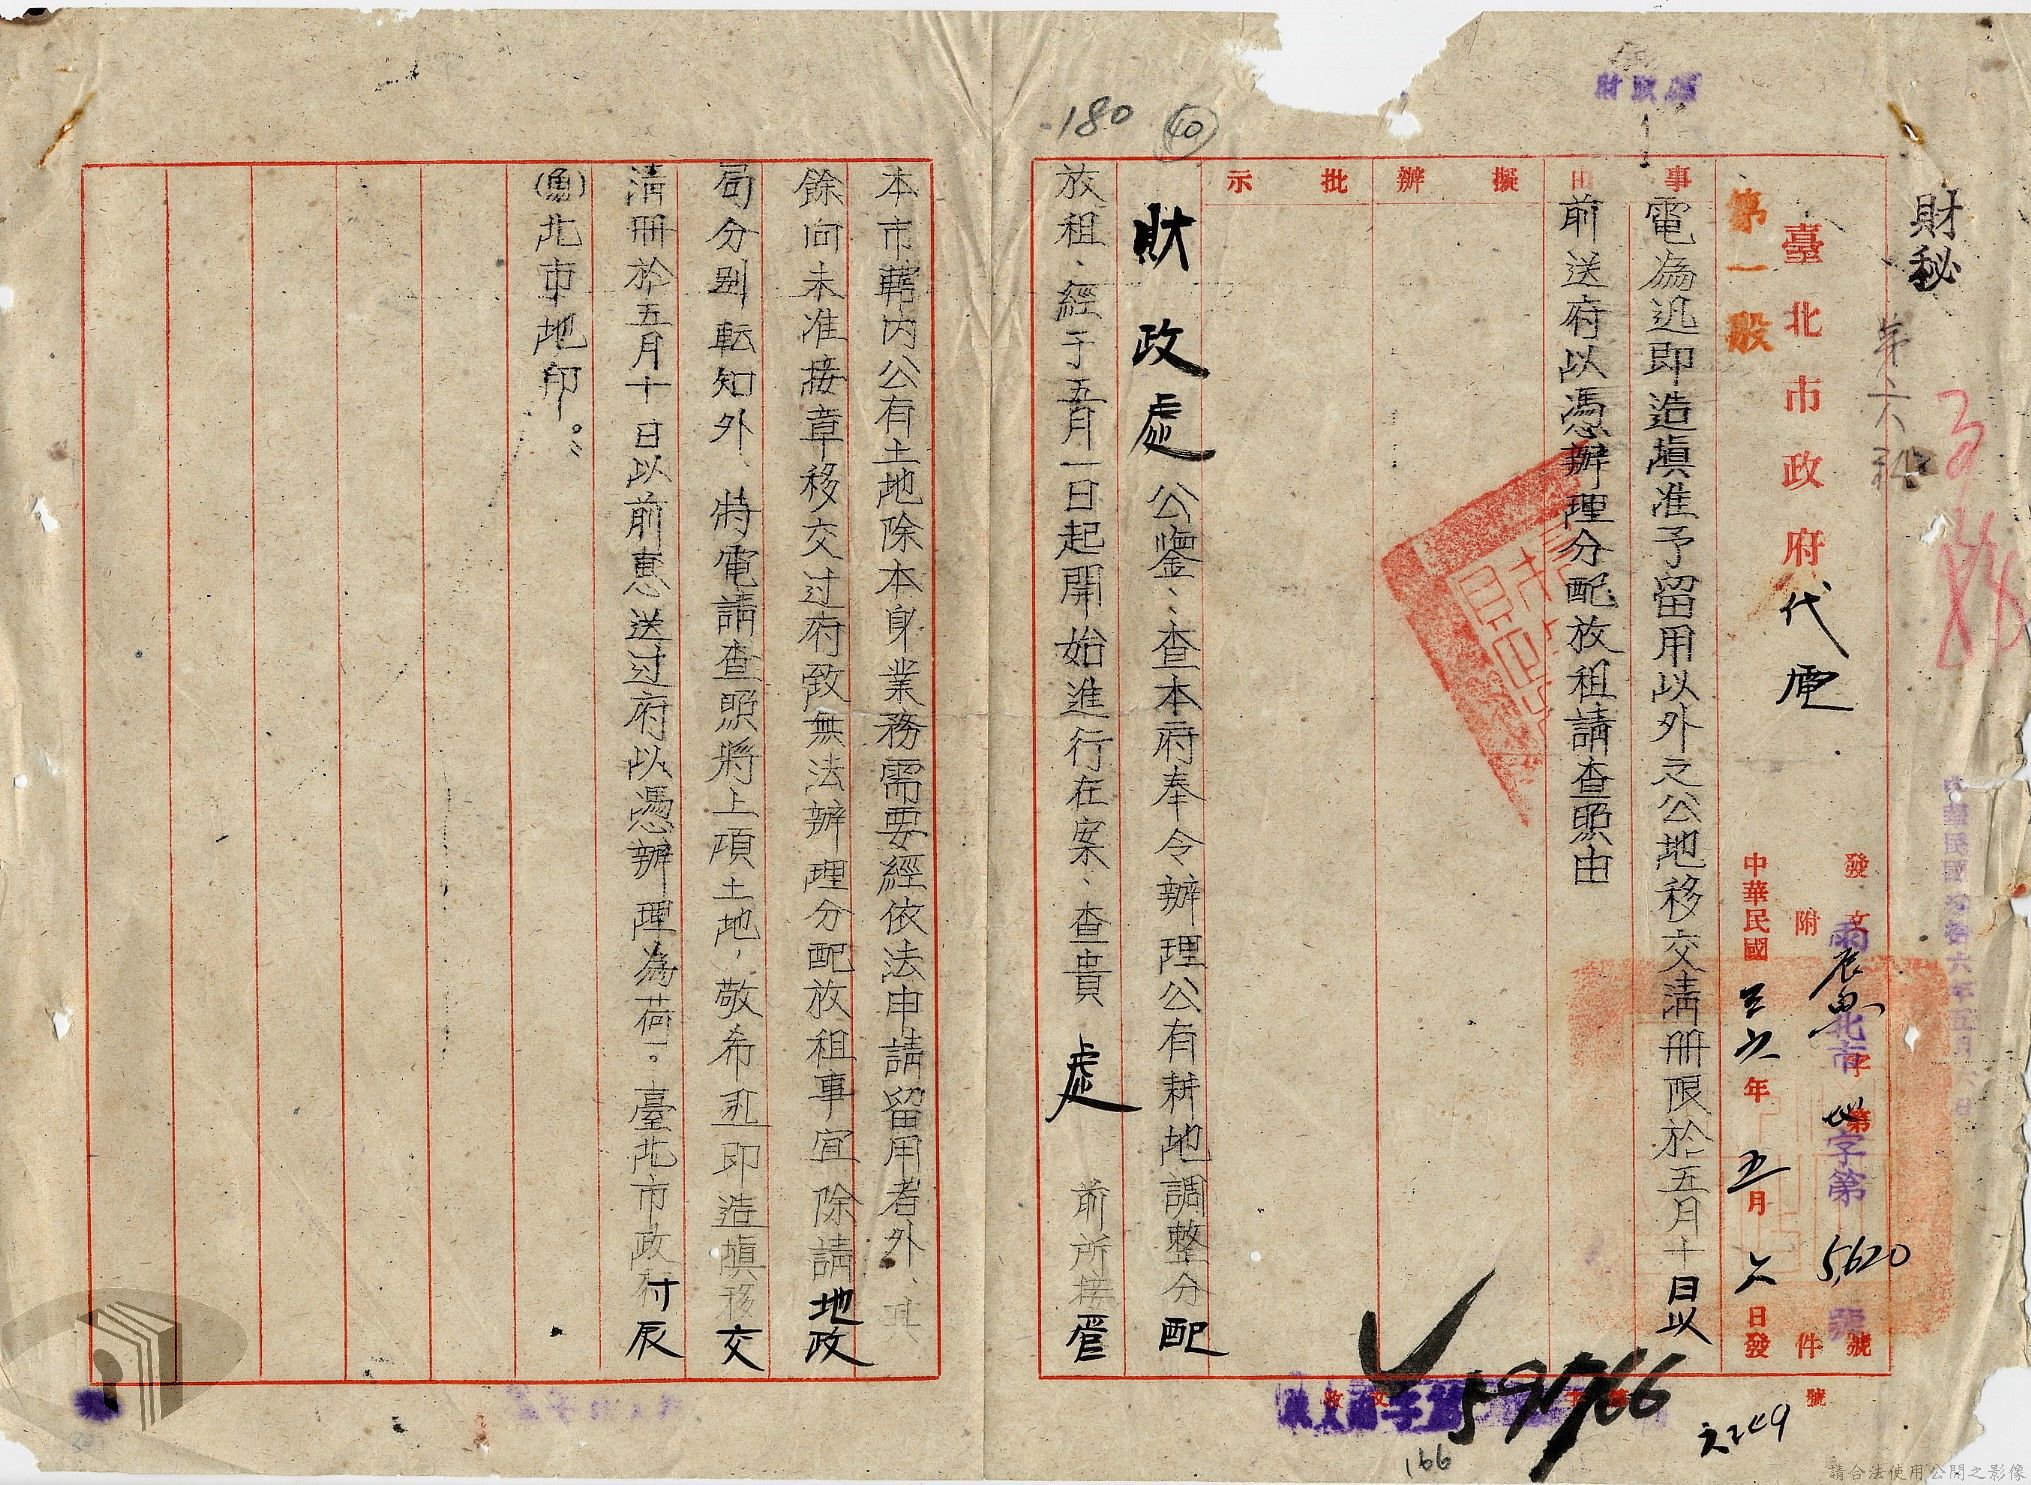 財政處
財秘
第六科
臺北市政府代電
第一般
發文辰魚北市地字第5620號
附件
中華民國三六年五月六日發
事由
擬辦
批示
電為迅即造填准予留用以外之公地移交清册限於五月十日以
前送府以憑辦理分配放租請查照由
180
40
財政處公鑒：查本府奉令辦理公有耕地調整分配
放租、經于五月一日起開始進行在案、查貴處前所接管
本市轄内公有土地除本身業務需要經依法申請留用者外、其
餘向未准接章移交过府致無法辦理分配放租事宜除請地政
局分別転知外、特電請查照將上項土地，敬希迅即造填移交
清册於五月十日以前惠送过府以憑辦理為荷。臺北市政府辰
(魚)北市地印。
收文字第59766號
166
請合法使用公開之影像